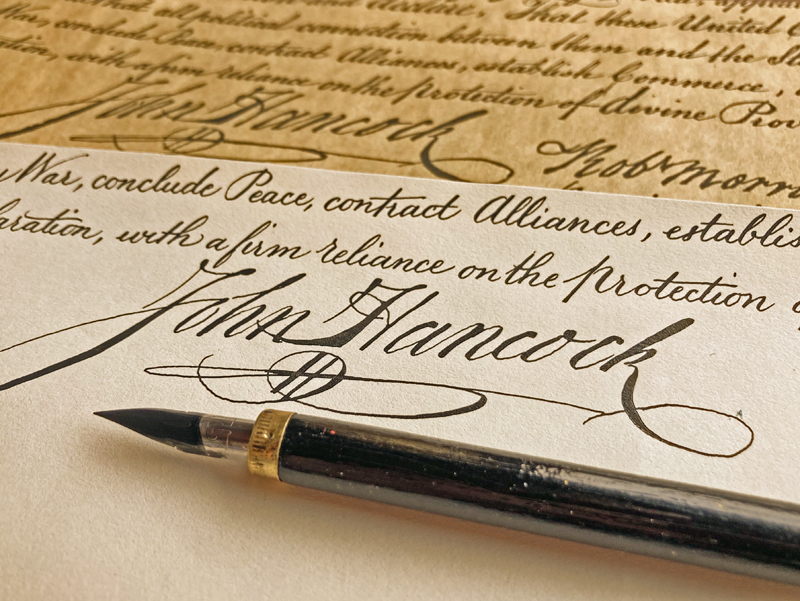 decline. That these United
that all political connection between them and the
War, conclude Peace, contract Alliances, establish Commerce,
with a firm reliance on the protection of divine
John Hancock
Robt Morr
War, conclude Peace, contract Alliances, establis
laration, with a firm reliance on the protection
John Hancock